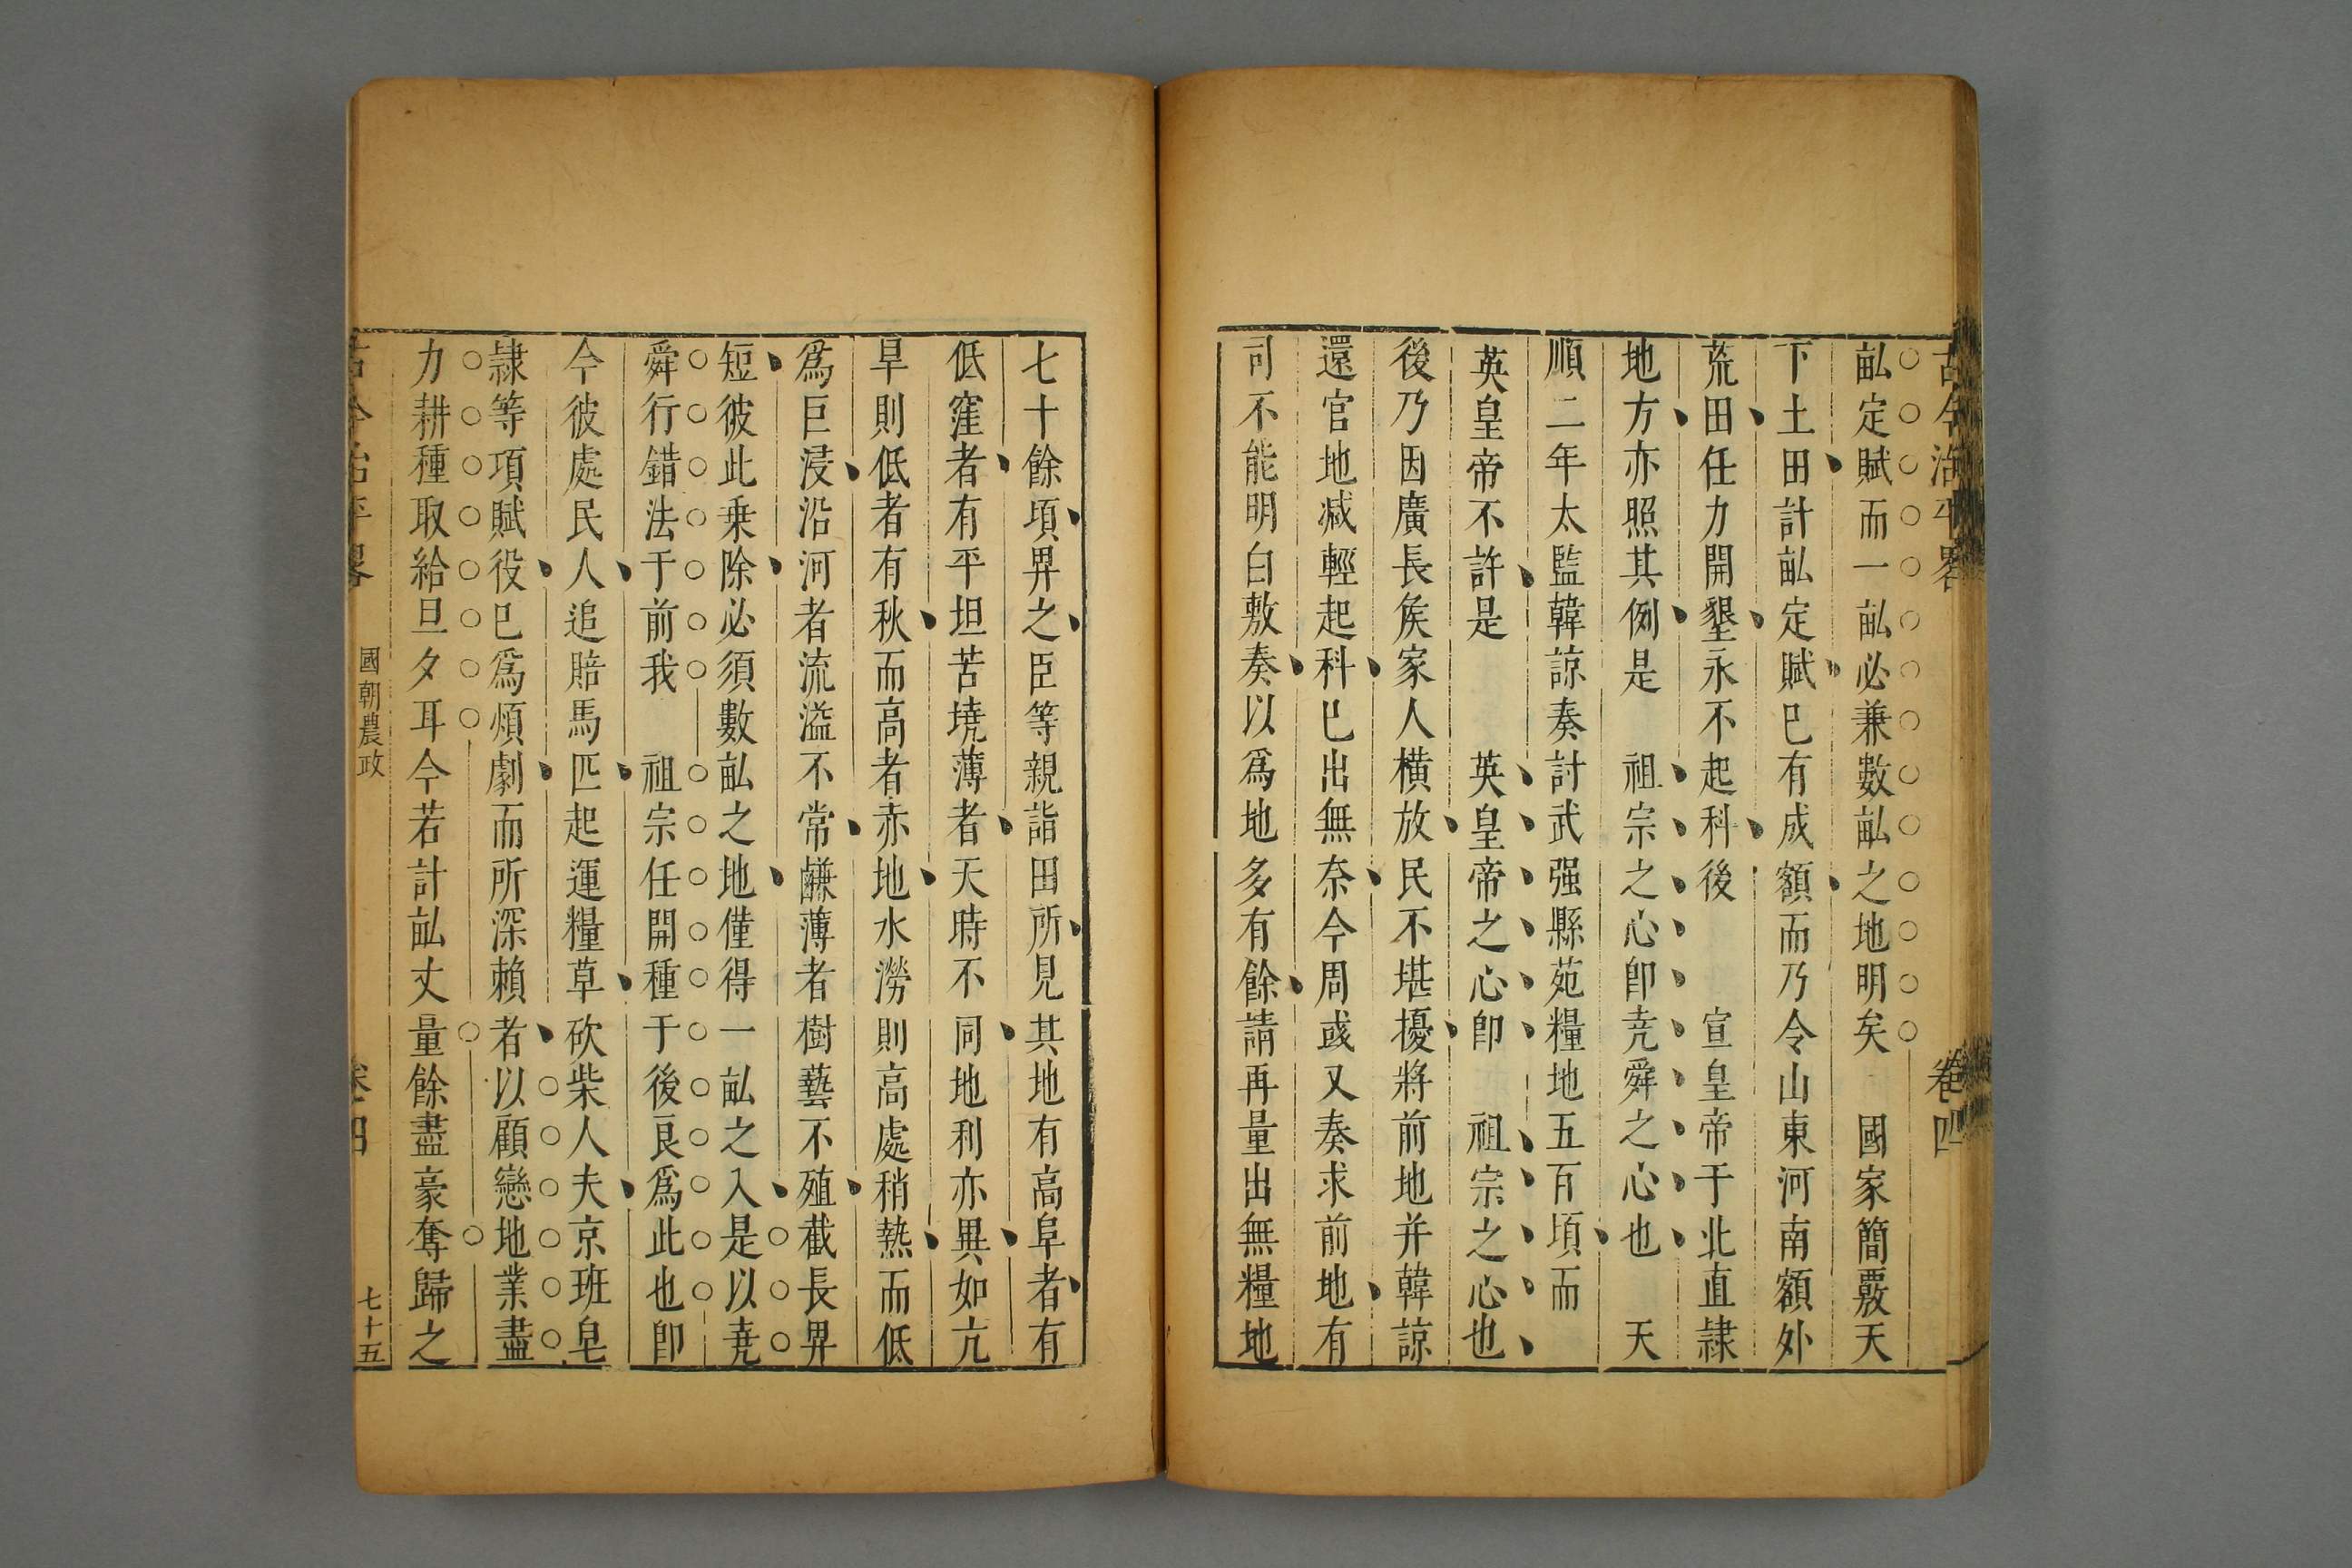 古今治平畧 卷四
畝定賦而一畝必兼數畝之地明矣 國家簡覈天
下土田計畝定賦巳有成額而乃令山東河南額外
荒田任力開墾永不起科後 宣皇帝于北直隷
地方亦照其例是 祖宗之心卽堯舜之心也 天
順二年太監韓諒奏討武强縣苑糧地五百頃而
英皇帝不許是 英皇帝之心卽 祖宗之心也
後乃因廣長矦家人橫放民不堪擾將前地并韓諒
還官地减輕起科巳出無奈今周彧又奏求前地有
司不能明白敷奏以爲地多有餘請再量出無糧地
七十餘頃畀之臣等親詣田所見其地有高阜者有
低窪者有平坦苦墝薄者天時不同地利亦異如亢
旱則低者有秋而高者赤地水澇則高處稍熟而低
爲巨浸沿河者流溢不常鹻薄者樹藝不殖截長畀
短彼此乗除必須數畝之地僅得一畝之入是以堯
舜行錯法于前我 祖宗任開種于後良爲此也卽
今彼處民人追賠馬匹起運糧草砍柴人夫京班皂
隷等項賦役巳爲煩劇而所深賴者以顧戀地業盡
力耕種取給旦夕耳今若計畝丈量餘盡豪奪歸之
古今治平畧 國朝農政 卷四 七十五